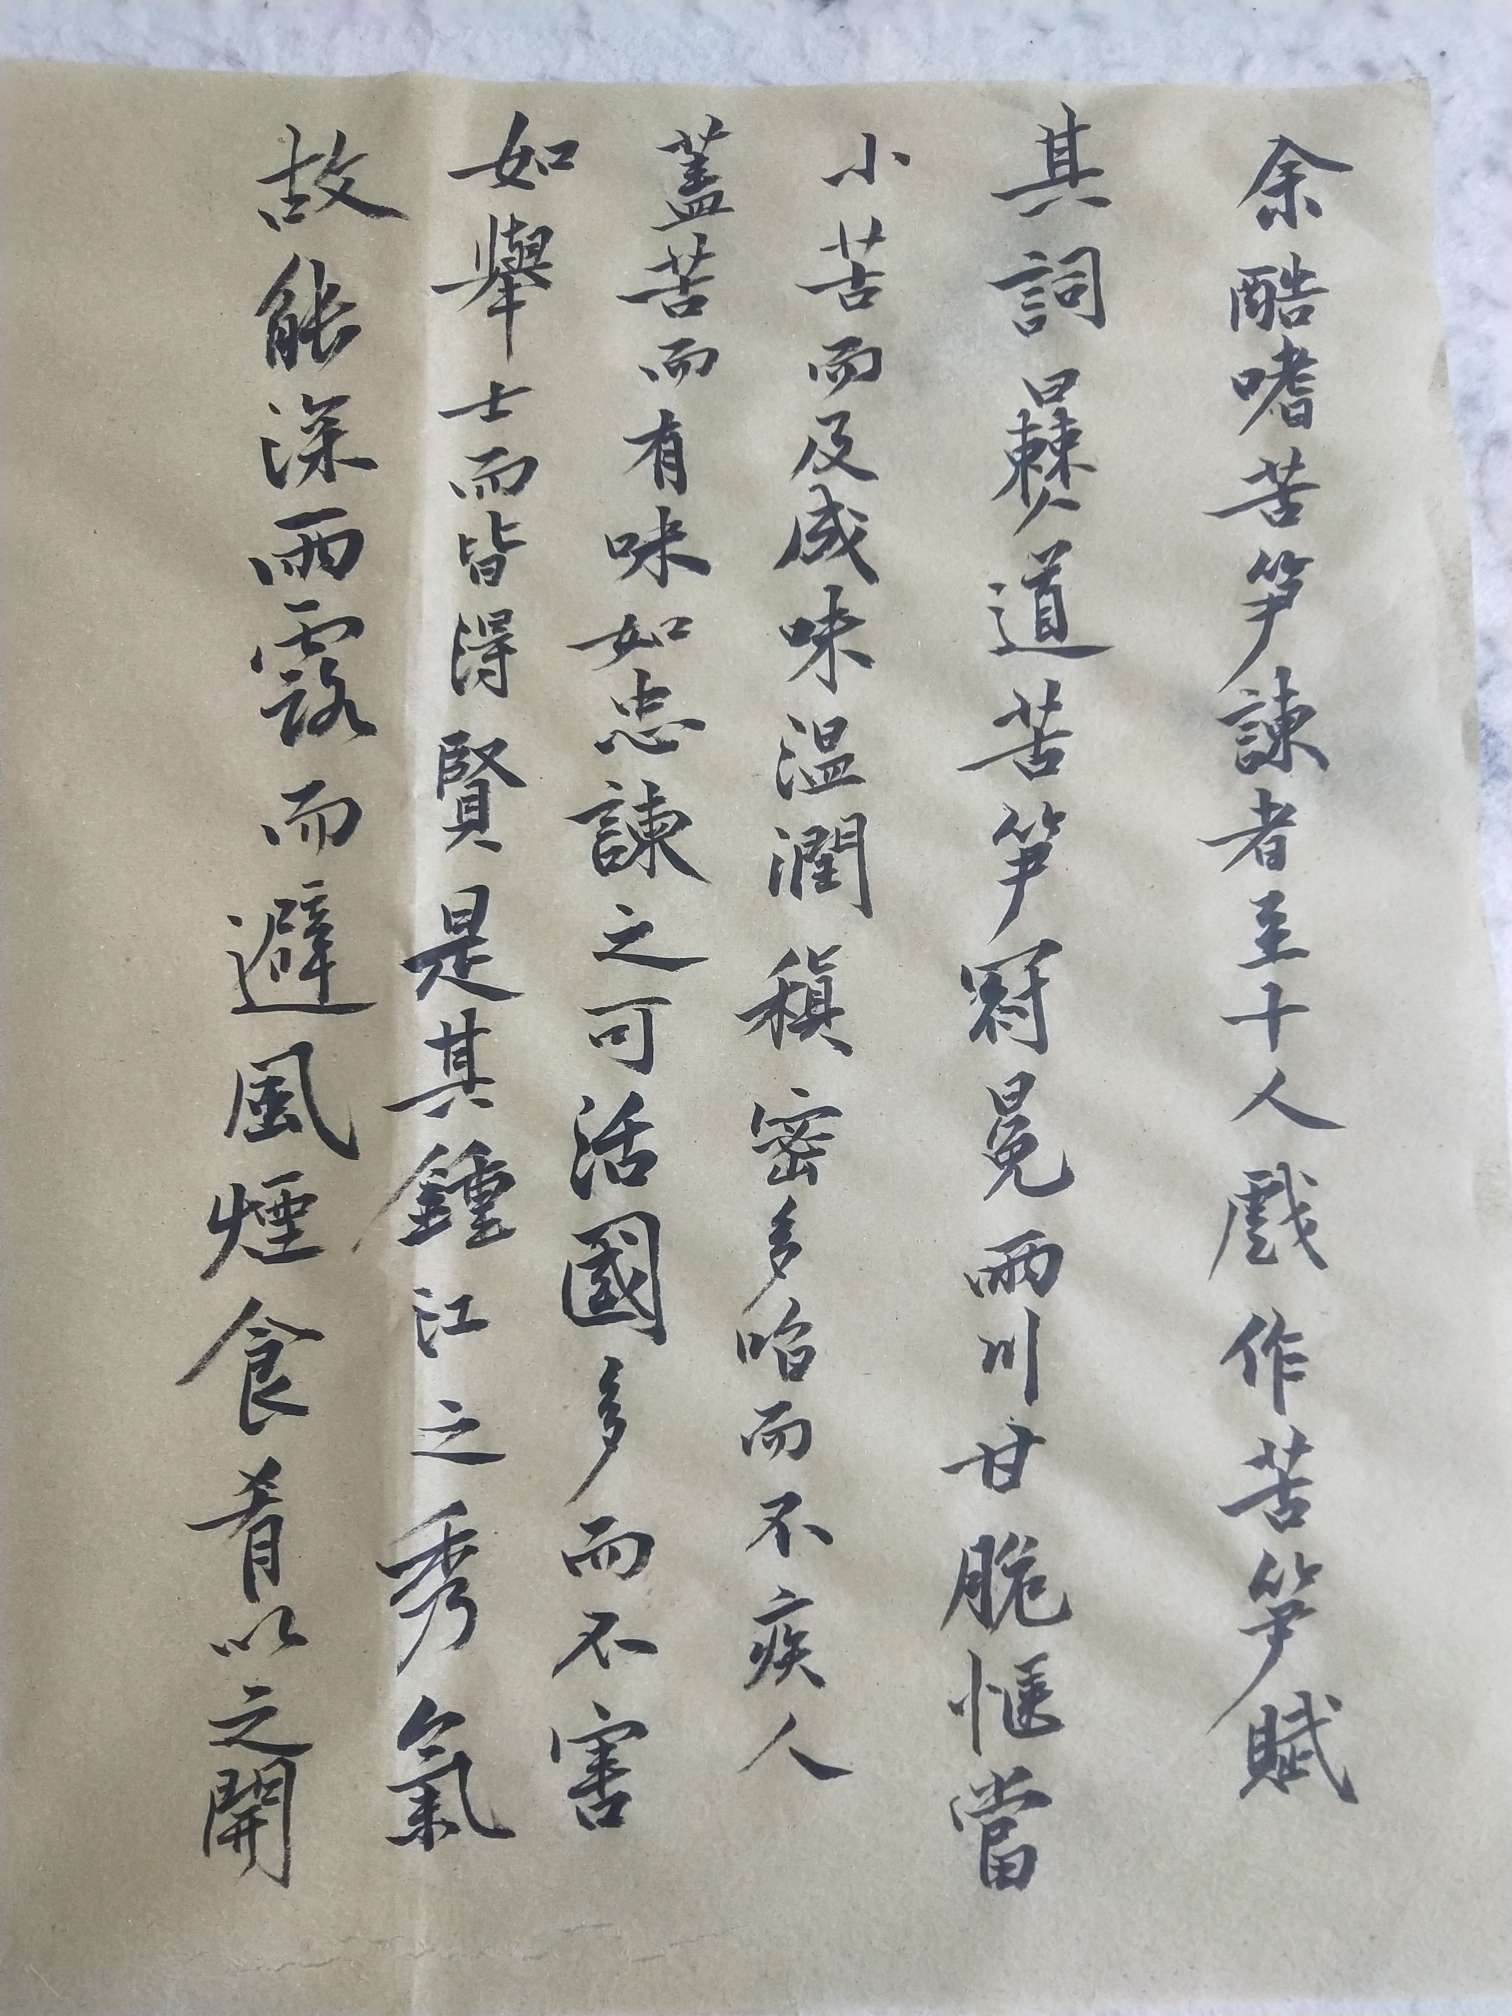 余酷嗜苦笋諫者至十人戲作苦笋賦
其詞曰僰道苦笋冠冕兩川甘脆愜當
小苦而及成味温潤稹密多啗而不疾人
蓋苦而有味如忠諫之可活國多而不害
如舉士而皆得賢是其鍾江之秀氣
故能深雨露而避風煙食肴以之開